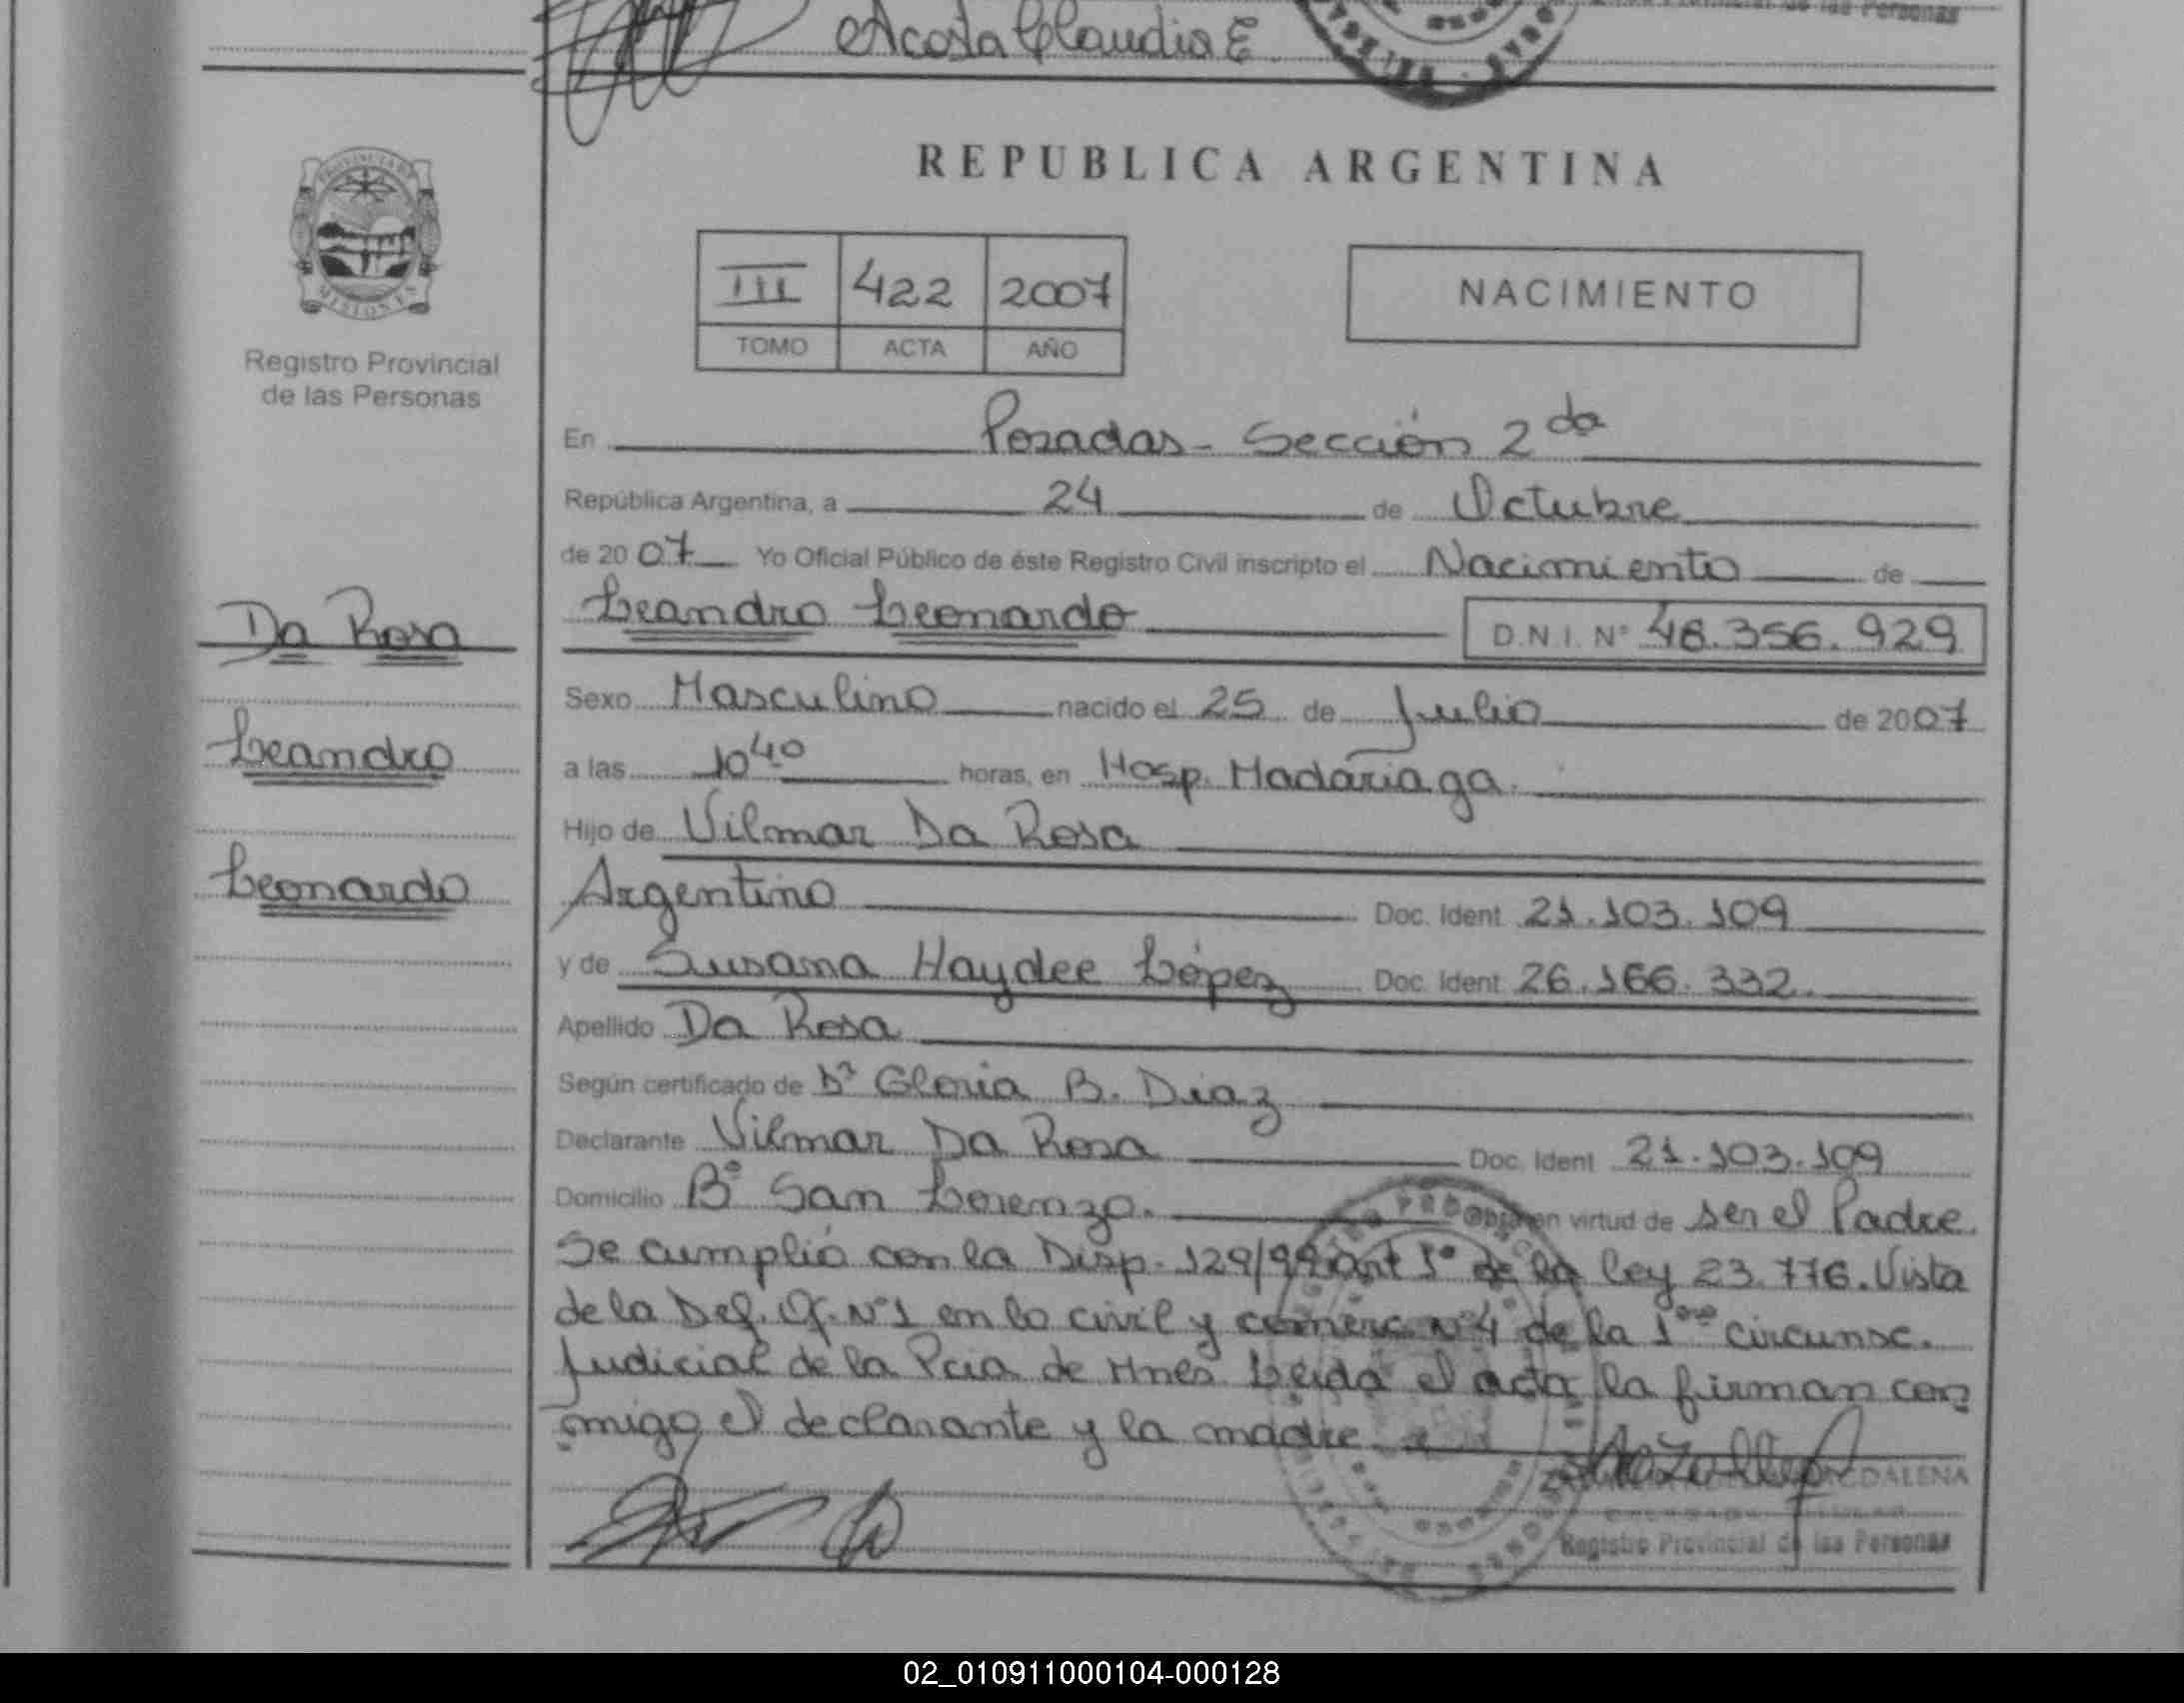 Acosta Claudia E
de las Personas
REPUBLICA ARGENTINA
PROVINCIA DE
MISIONES
Registro Provincial
de las Personas
III 422 2007
TOMO ACTA AÑO
NACIMIENTO
En Posadas - Sección 2da
República Argentina, a 24 de Octubre
de 2007 Yo Oficial Público de éste Registro Civil inscripto el Nacimiento de
Da Rosa
Leandro
Leonardo
Leandro Leonardo D.N.I. Nº 48.356.929
Sexo Masculino nacido el 25 de Julio de 2007
a las 10 40 horas, en Hosp. Madariaga.
Hijo de Vilmar Da Rosa
Argentino Doc. Ident. 21.103.109
y de Susana Haydee López Doc. Ident. 26.166.332.
Apellido Da Rosa
Según certificado de Dra Gloria B. Diaz
Declarante Vilmar Da Rosa Doc. Ident. 21.103.109
Domicilio Bº San Lorenzo. en virtud de ser el Padre
Se cumplió con la Disp. 129/99 art 5º de la ley 23.776. Vista
de la Def. Of. Nº1 en lo civil y comerc. Nº4 de la 1era circunsc.
Judicial de la Pcia de Mnes. Leida el acta la firman con
migo el declarante y la madre.
MAGDALENA
Registro Provincial de las Personas
02_010911000104-000128